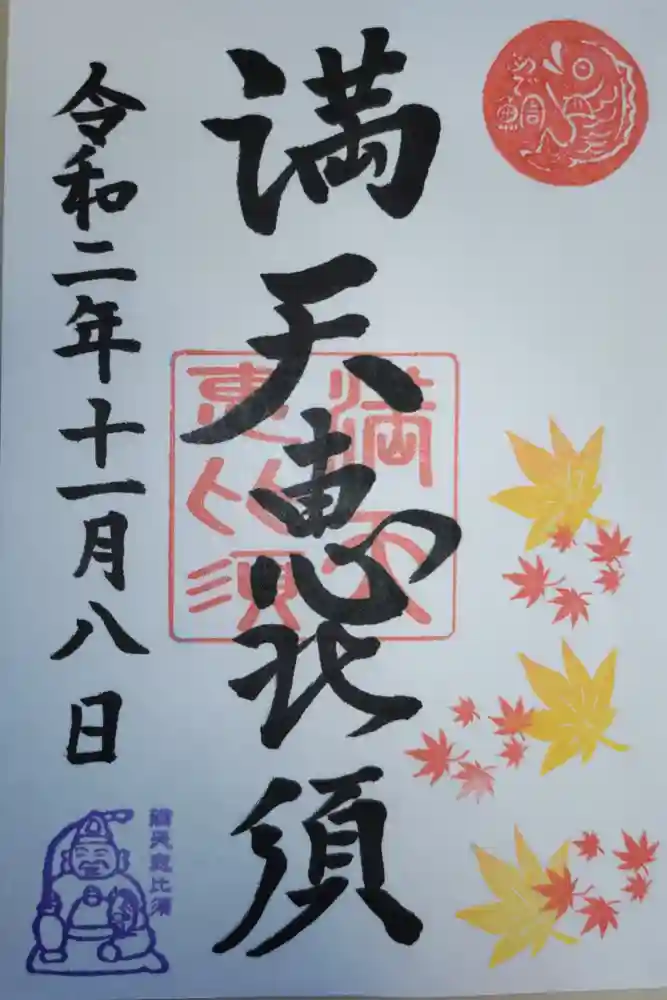 めで鯛
満天恵比須
満天恵比須
令和二年十一月八日
満天恵比須